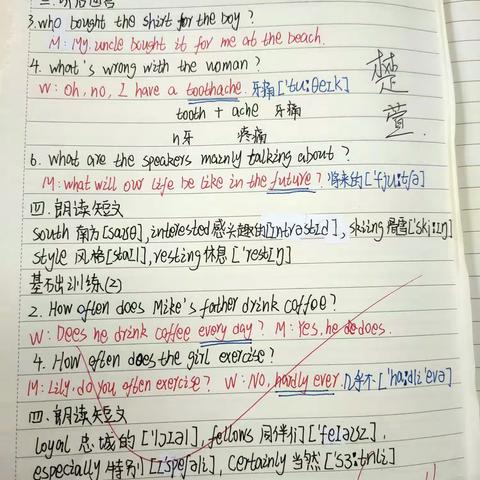 三.听后回答
3.who bought the shirt for the boy?
M: My uncle bought it for me at the beach.
4. what's wrong with the woman?
W: Oh, no, I have a toothache. 牙痛 ['tu:θeɪk]
tooth + ache 牙痛
n牙 疼痛
楚萱
6. What are the speakers mainly talking about?
M: what will our life be like in the future? 将来的 ['fju:tʃə]
四.朗读短文
south 南方 [saʊθ], interested 感兴趣的 [ɪntrəstɪd], skiing 滑雪 ['ski:ɪŋ]
style 风格 [staɪl], resting 休息 ['restɪŋ]
基础训练(2)
2. How often does Mike's father drink coffee?
W: Does he drink coffee every day? M: Yes, he does.
4. How often does the girl exercise?
M: Lily, do you often exercise? W: No, hardly ever. 几乎不 ['ha:dli 'evə]
四.朗读短文
loyal 忠诚的 ['lɔɪəl], fellows 同伴们 ['feləʊz],
especially 特别 [ɪ'speʃəli], certainly 当然 ['sɜ:tnli]